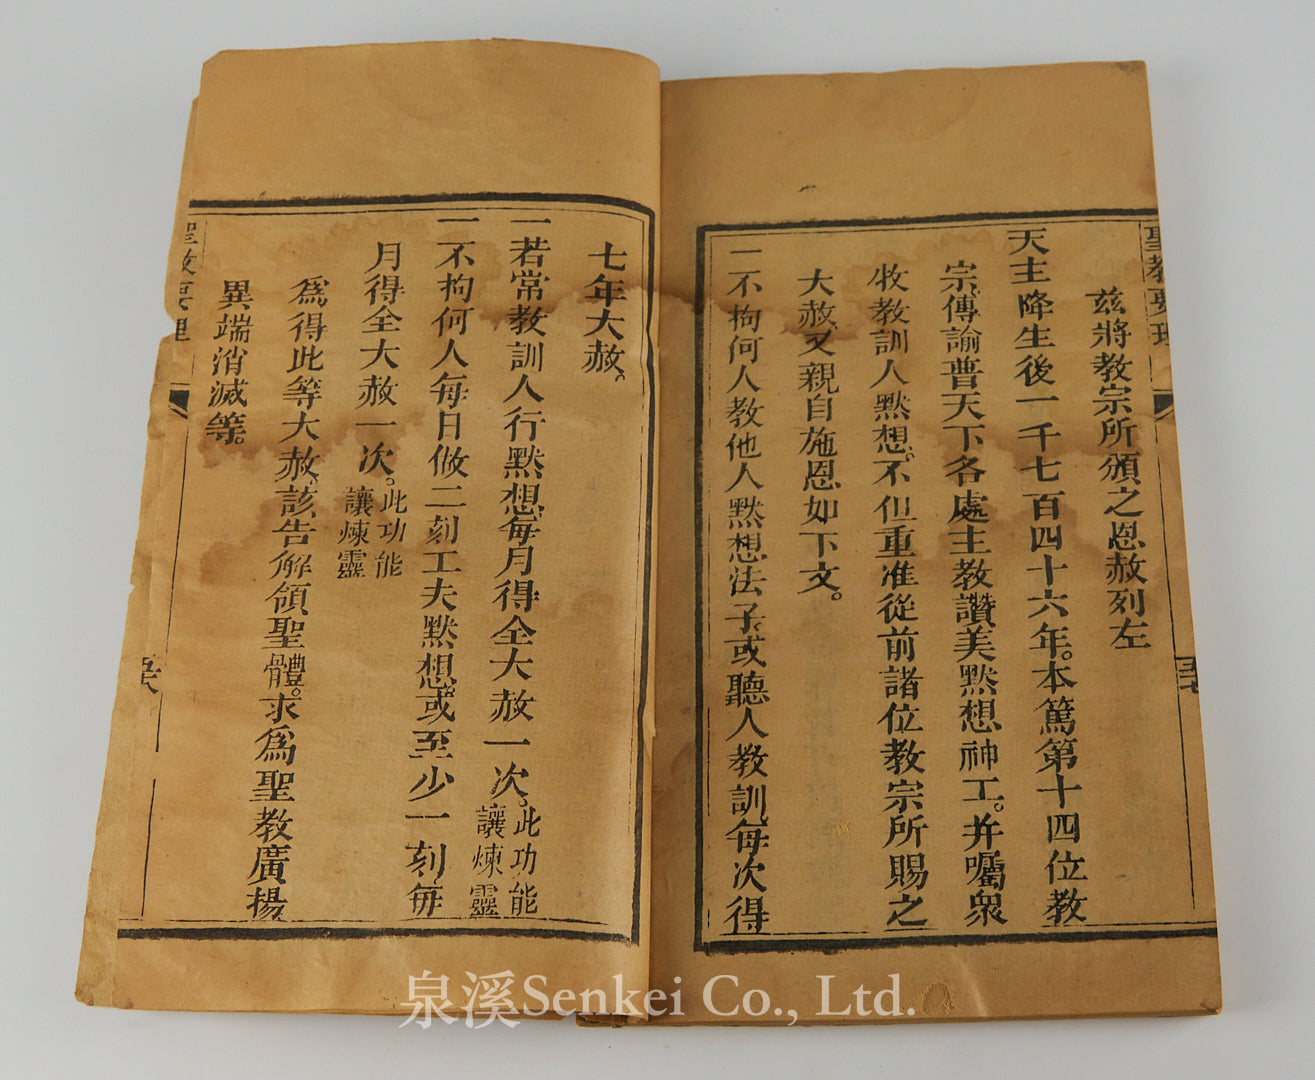 聖教要理
茲將教宗所頒之恩赦列左
天主降生後一千七百四十六年。本篤第十四位教
宗、傳諭普天下各處主教讚美默想神工。并囑衆
牧教訓人默想。不但重准從前諸位教宗所賜之
大赦、又親自施恩如下文。
一不拘何人教他人默想法子、或聽人教訓、每次得
七年大赦。
一若常教訓人行默想、每月得全大赦一次。此功能
讓煉靈
一不拘何人每日做二刻工夫默想。或至少一刻、每
月得全大赦一次。此功能
讓煉靈
爲得此等大赦、該告解領聖體。求爲聖教廣揚
異端消滅等。
聖教要理
泉溪Senkei Co., Ltd.